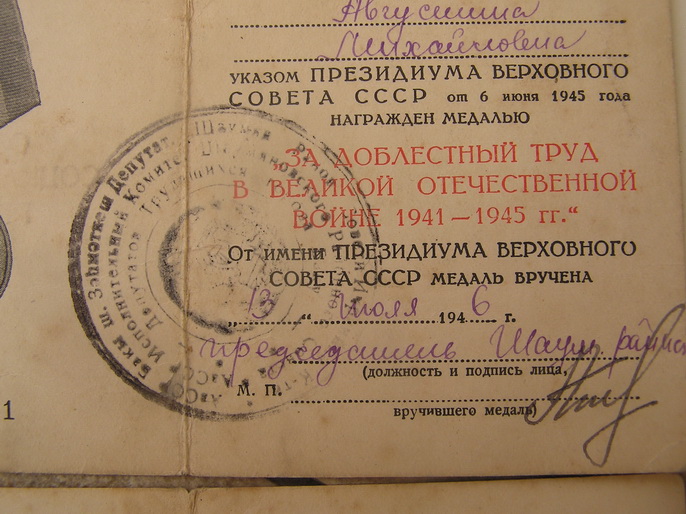 Августина
Михайловна
УКАЗОМ ПРЕЗИДИУМА ВЕРХОВНОГО
СОВЕТА СССР от 6 июня 1945 года
НАГРАЖДЕН МЕДАЛЬЮ
„ЗА ДОБЛЕСТНЫЙ ТРУД
В ВЕЛИКОЙ ОТЕЧЕСТВЕННОЙ
ВОЙНЕ 1941—1945 гг.“
От имени ПРЕЗИДИУМА ВЕРХОВНОГО
СОВЕТА СССР МЕДАЛЬ ВРУЧЕНА
„13“ Июля 1946 г.
председатель Шаум
(должность и подпись лица,
М. П.
вручившего медаль)
Исполнительный Комитет
Депутатов Трудящихся
1